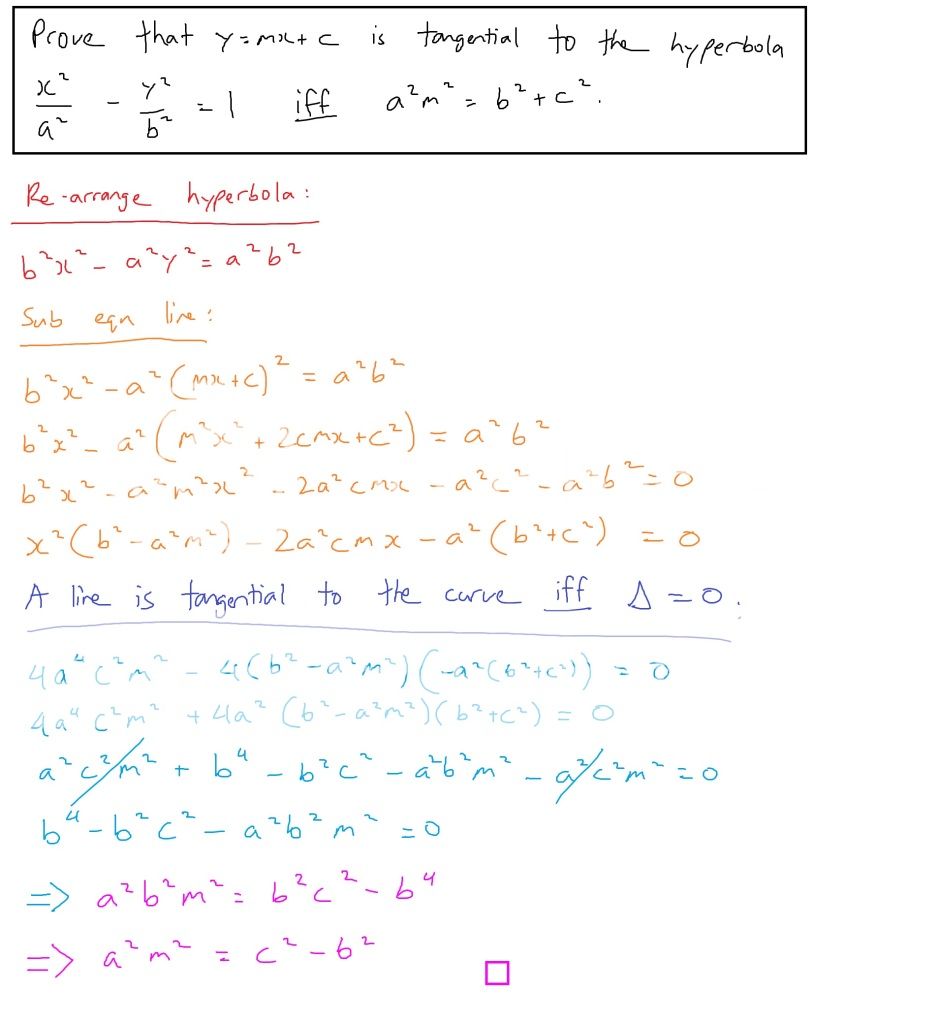 Prove that y = mx + c is tangential to the hyperbola
x²/a² - y²/b² = 1 iff a²m² = b² + c².
Re-arrange hyperbola:
b²x² - a²y² = a²b²
Sub eqn line:
b²x² - a²(mx+c)² = a²b²
b²x² - a²(m²x² + 2cmx + c²) = a²b²
b²x² - a²m²x² - 2a²cmx - a²c² - a²b² = 0
x²(b² - a²m²) - 2a²cmx - a²(b²+c²) = 0
A line is tangential to the curve iff Δ = 0.
4a⁴c²m² - 4(b² - a²m²)(-a²(b²+c²)) = 0
4a⁴c²m² + 4a²(b² - a²m²)(b²+c²) = 0
a²c²m² + b⁴ - b²c² - a²b²m² - a²c²m² = 0
b⁴ - b²c² - a²b²m² = 0
=> a²b²m² = b²c² - b⁴
=> a²m² = c² - b² □